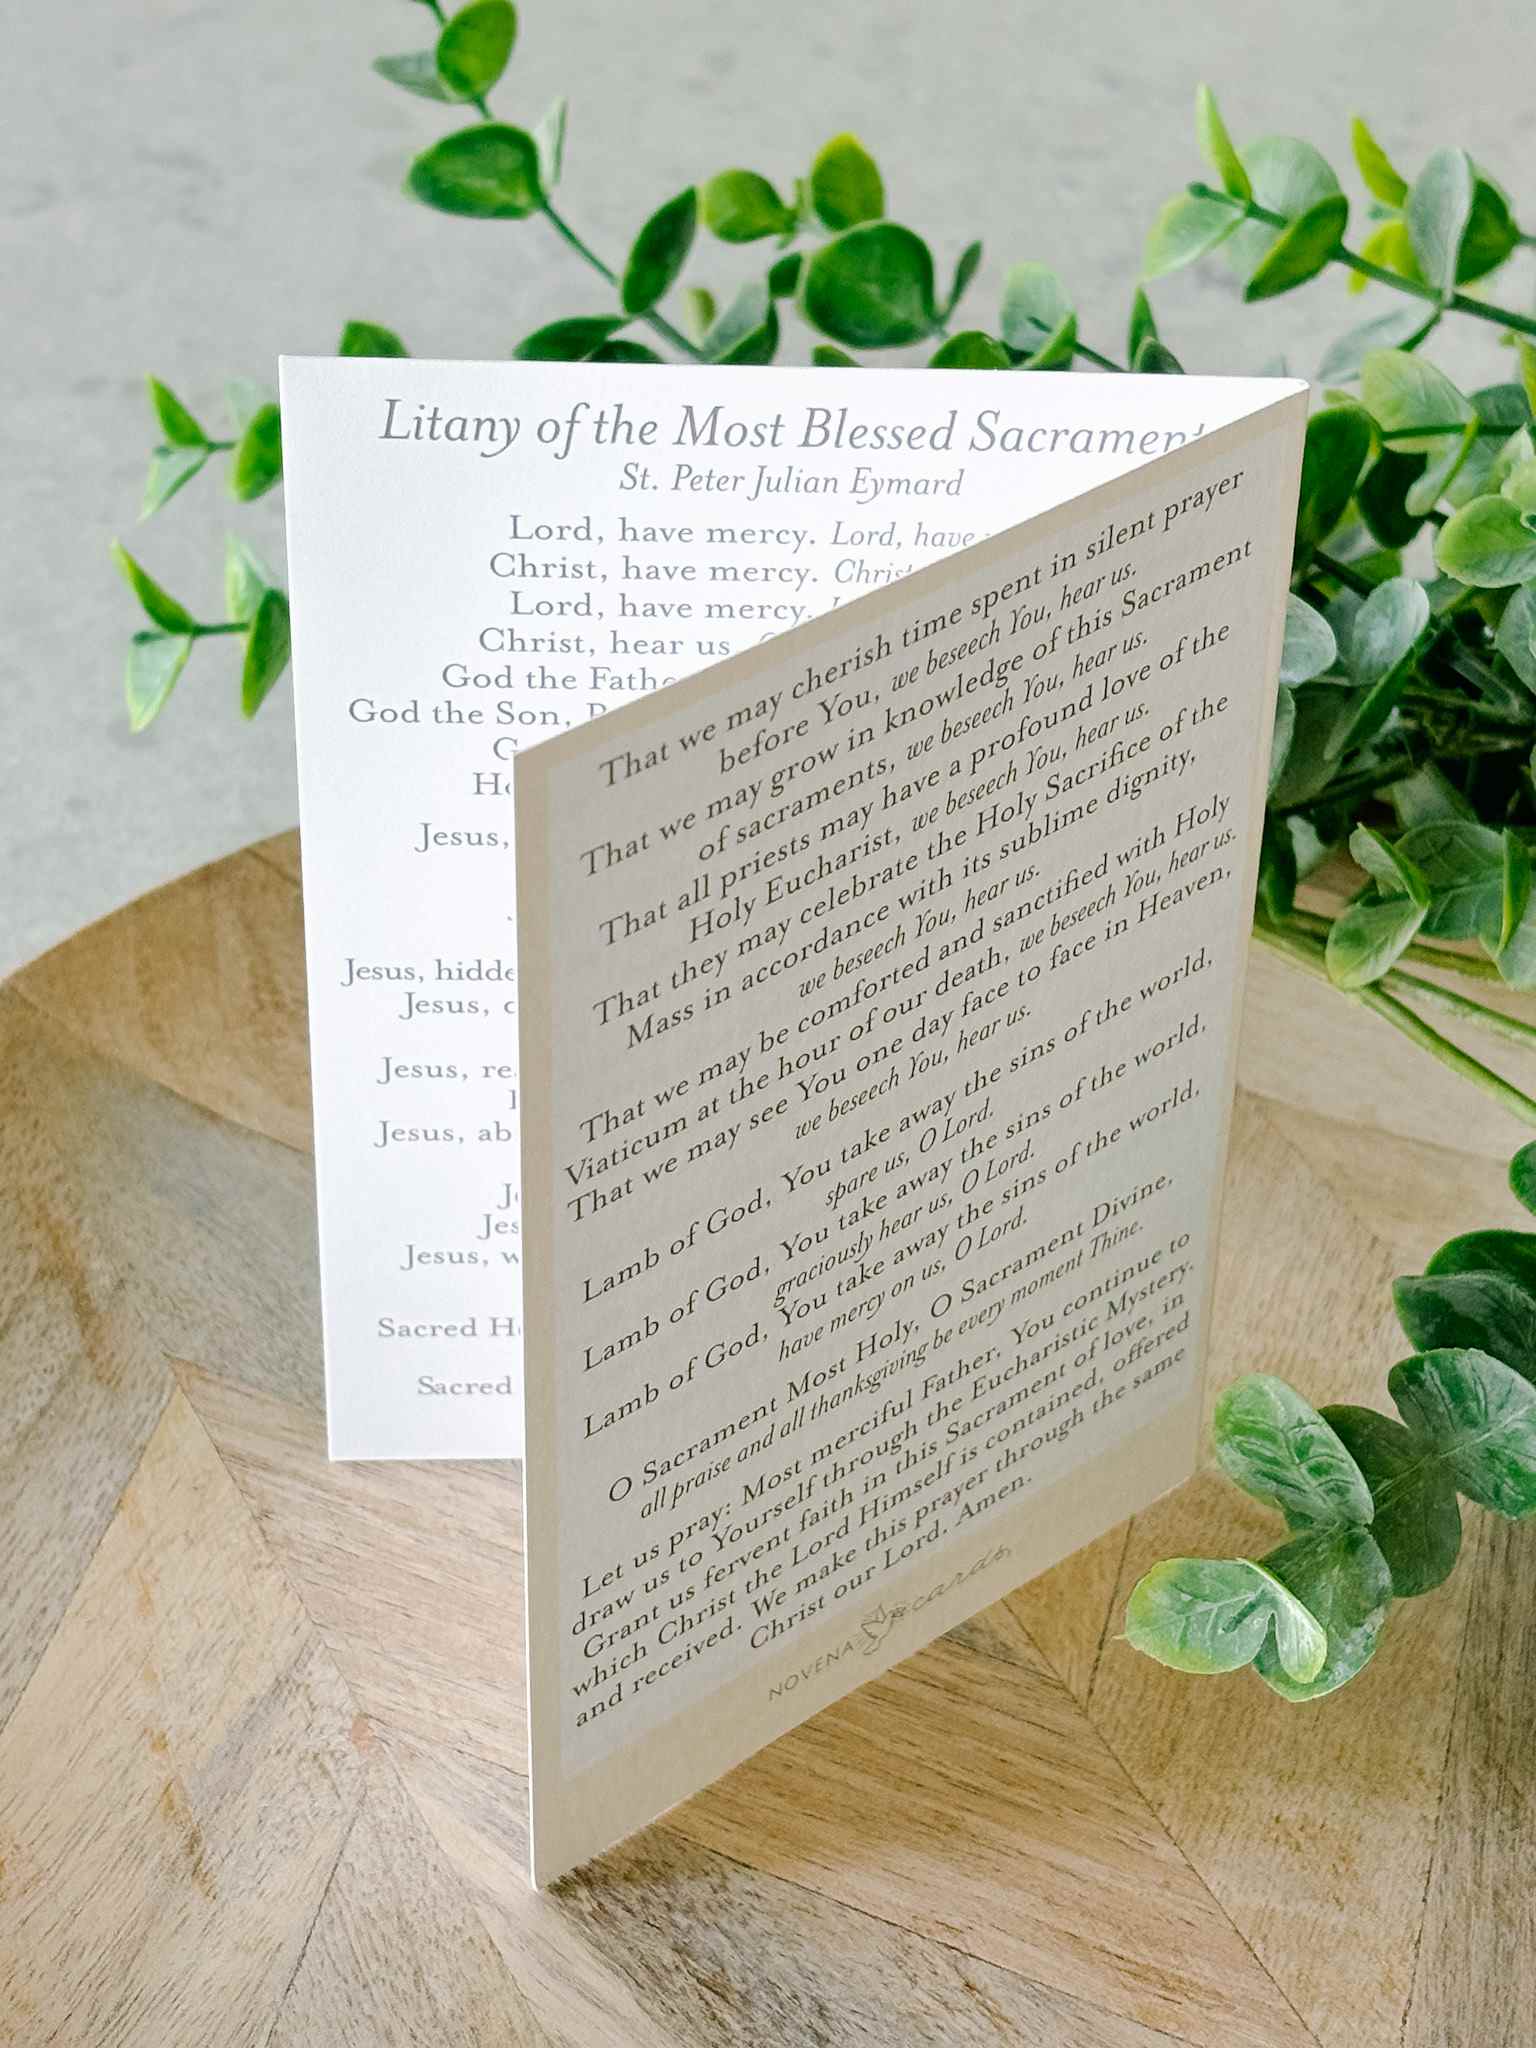 Litany of the Most Blessed Sacrament
St. Peter Julian Eymard
Lord, have mercy. Lord, have
Christ, have mercy.
Lord, have mercy.
Christ, hear us.
God the
God the Son,
Jesus,
Jesus,
Jesus,
Jesus,
Jesus,
Jesus,
Sacred
Sacred
That we may cherish time spent in silent prayer
before You, we beseech You, hear us.
That we may grow in knowledge of this Sacrament
of sacraments, we beseech You, hear us.
That all priests may have a profound love of the
Holy Eucharist, we beseech You, hear us.
That they may celebrate the Holy Sacrifice of the
Mass in accordance with its sublime dignity,
we beseech You, hear us.
That we may be comforted and sanctified with Holy
Viaticum at the hour of our death, we beseech You, hear us.
That we may see You one day face to face in Heaven,
we beseech You, hear us.
Lamb of God, You take away the sins of the world,
spare us, O Lord.
Lamb of God, You take away the sins of the world,
graciously hear us, O Lord.
Lamb of God, You take away the sins of the world,
have mercy on us, O Lord.
O Sacrament Most Holy, O Sacrament Divine,
all praise and all thanksgiving be every moment Thine.
Let us pray: Most merciful Father, You continue to
draw us to Yourself through the Eucharistic Mystery.
Grant us fervent faith in this Sacrament of love, in
which Christ the Lord Himself is contained, offered
and received. We make this prayer through the same
Christ our Lord. Amen.
NOVENA cards